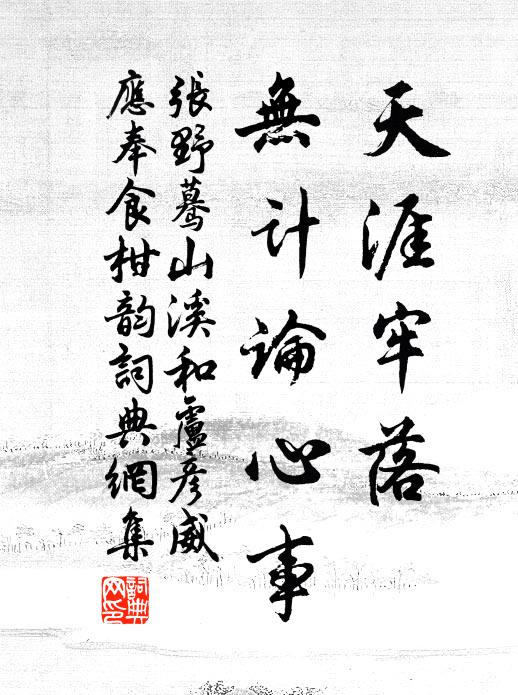 天涯牢落
無计論心事
張野蓦山溪和盧彦威
應奉食柑韵詞典網集
詞典
网印